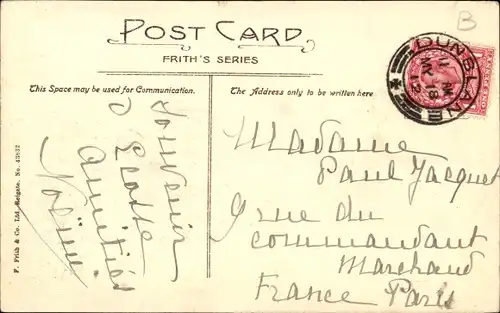 POST CARD
FRITH'S SERIES
This Space may be used for Communication.
The Address only to be written here
B
DUNBLANE
MY 19
12
Souvenir
d'Ecosse
Amitiés
F. Frith & Co. Ltd. Reigate. No.
Madame
Paul Jacquet
9 rue du
commandant
Marchand
France Paris